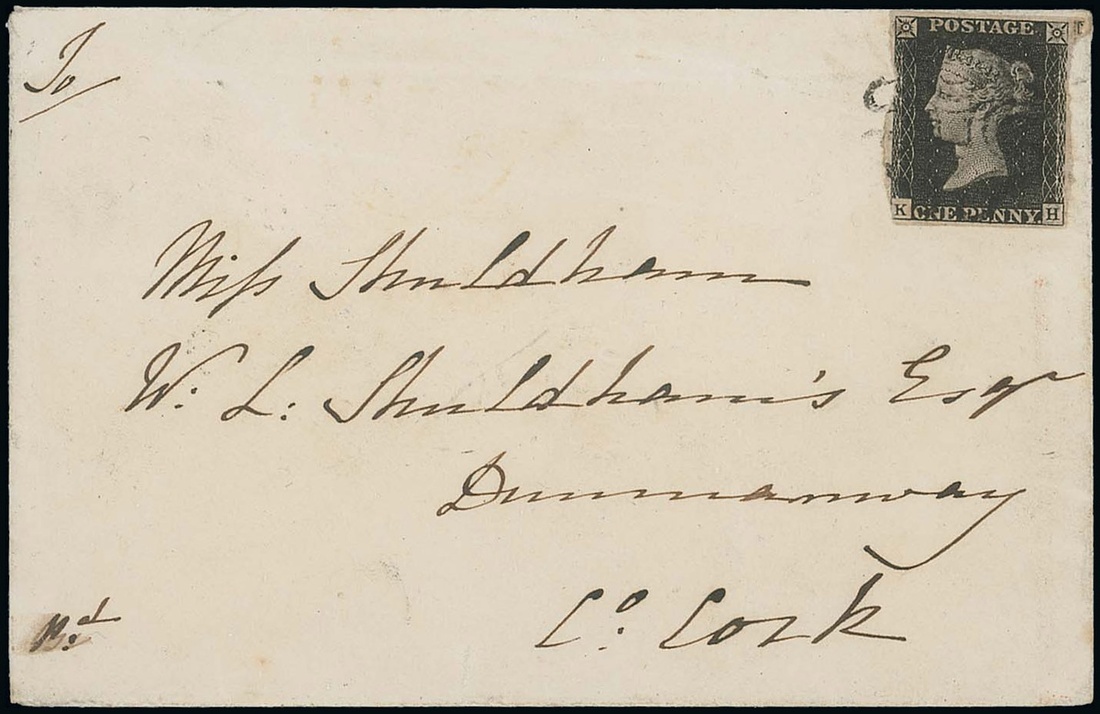 To
POSTAGE
K ONE PENNY. H
Miss Shuldham
W: L: Shuldham's Esqr
Dunmanway
Co: Cork
Pd